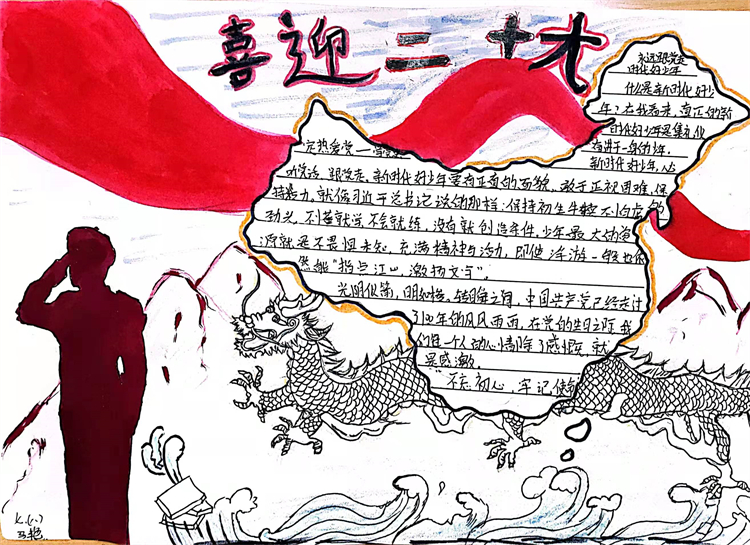 喜迎二十大
永远跟党走
时代好少年
什么是新时代好少
年?在我看来,真正的新
时代好少年是集礼仪
与进于一身的少年,
新时代好少年,从
先热爱党一
听党话,跟党走。新时代好少年要有正直的面貌,敢于正视困难,保
持毅力,就像习近平总书记说的那样:保持初生牛犊不怕虎的
劲头,不懂就学,不会就练,没有就创造条件。少年最大的资
源就是不畏惧未知,充满精神与活力,即使浮游一般也依
然能“指点江山,激扬文字”。
光阴似箭,日月如梭。转瞬之间,中国共产党已经走过
了100年的风风雨雨,在党的生日之际,我
们每一个人的心情除了感慨,就
是感激。
“不忘初心,牢记使命